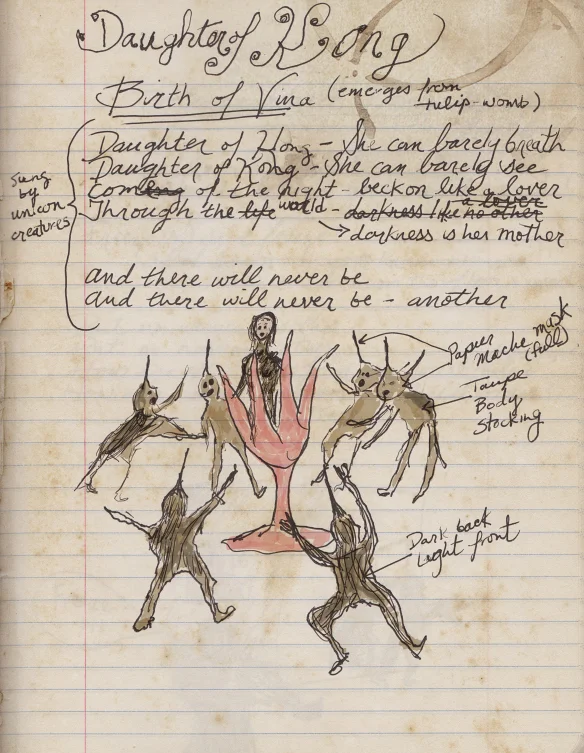 Daughter of Kong
Birth of Vina (emerges from
tulip-womb)
Daughter of Kong - She can barely breath
Daughter of Kong - She can barely see
coming of the night - beckon like a lover
Through the life world - darkness like no other
a lover
darkness is her mother
sung
by
unicon
creatures
and there will never be
and there will never be - another
Papier
Mache mask
(full)
Taupe
Body
Stocking
Dark back
Light front